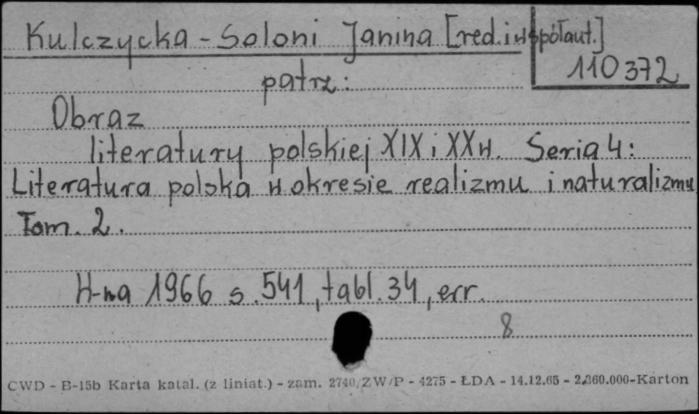 Kulczycka-Saloni Janina [red.i współaut.]
110372
patrz:
Obraz
literatury polskiej XIX i XX w. Seria 4:
Literatura polska w okresie realizmu i naturalizmu
Tom. 2.
W-wa 1966 s. 541, tabl. 34, err.
8
CWD - B-15b Karta katal. (z liniat.) - zam. 2740/ZW/P - 4275 - ŁDA - 14.12.65 - 2.360.000-Karton